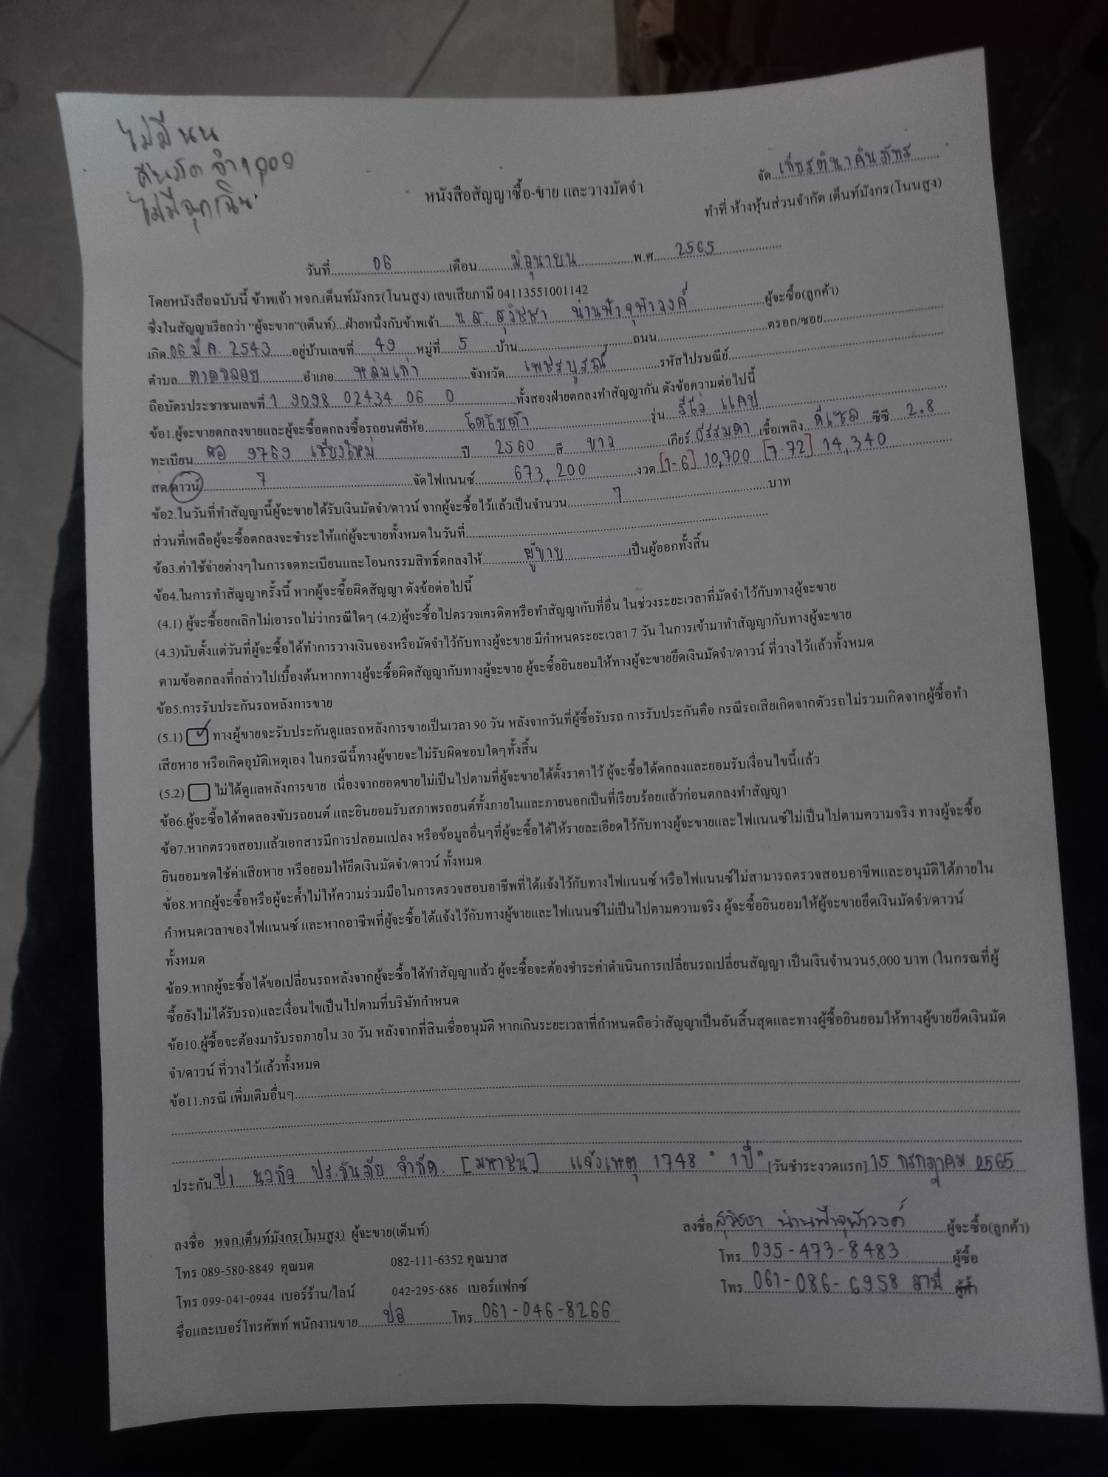 ไม่มี นน
คืนมัดจำ 1,000
ไม่มีฉุกเฉิน
จัด เกียรตินาคินภัทร
หนังสือสัญญาซื้อ-ขาย และวางมัดจำ
ทำที่ ห้างหุ้นส่วนจำกัด เต็นท์มังกร(โนนสูง)
วันที่ 06 เดือน มิถุนายน พ.ศ. 2565
โดยหนังสือฉบับนี้ ข้าพเจ้า หจก.เต็นท์มังกร(โนนสูง) เลขเสียภาษี 04113551001142
ซึ่งในสัญญาเรียกว่า "ผู้จะขาย"(เต็นท์)...ฝ่ายหนึ่งกับข้าพเจ้า น.ส. สุวิชชา น่านฟ้าจุฬาวงค์ ผู้จะซื้อ(ลูกค้า)
เกิด 06 มี.ค. 2543 อยู่บ้านเลขที่ 49 หมู่ที่ 5 บ้าน ถนน ตรอก/ซอย
ตำบล ตาดกลอย อำเภอ หล่มเก่า จังหวัด เพชรบูรณ์ รหัสไปรษณีย์
ถือบัตรประชาชนเลขที่ 1 9098 02434 06 0 ทั้งสองฝ่ายตกลงทำสัญญากัน ดังข้อความต่อไปนี้
ข้อ1.ผู้จะขายตกลงขายและผู้จะซื้อตกลงซื้อรถยนต์ยี่ห้อ โตโยต้า รุ่น รีโว่ แคป
ทะเบียน 9769 เชียงใหม่ ปี 2560 สี ขาว เกียร์ ธรรมดา เชื้อเพลิง ดีเซล ซีซี 2.8
สด/ดาวน์ 7 จัดไฟแนนซ์ 673,200 งวด [1-6] 10,700 [7-72] 14,340
ข้อ2.ในวันที่ทำสัญญานี้ผู้จะขายได้รับเงินมัดจำ/ดาวน์ จากผู้จะซื้อไว้แล้วเป็นจำนวน 7 บาท
ส่วนที่เหลือผู้จะซื้อตกลงจะชำระให้แก่ผู้จะขายทั้งหมดในวันที่
ข้อ3.ค่าใช้จ่ายต่างๆในการจดทะเบียนและโอนกรรมสิทธิ์ตกลงให้ ผู้ขาย เป็นผู้ออกทั้งสิ้น
ข้อ4.ในการทำสัญญาครั้งนี้ หากผู้จะซื้อผิดสัญญา ดังข้อต่อไปนี้
(4.1) ผู้จะซื้อยกเลิกไม่เอารถไม่ว่ากรณีใดๆ (4.2)ผู้จะซื้อไปตรวจเครดิตหรือทำสัญญากับที่อื่น ในช่วงระยะเวลาที่มัดจำไว้กับทางผู้จะขาย
(4.3)นับตั้งแต่วันที่ผู้จะซื้อได้ทำการวางเงินจองหรือมัดจำไว้กับทางผู้จะขาย มีกำหนดระยะเวลา 7 วัน ในการเข้ามาทำสัญญากับทางผู้จะขาย
ตามข้อตกลงที่กล่าวไปเบื้องต้นหากทางผู้จะซื้อผิดสัญญากับทางผู้จะขาย ผู้จะซื้อยินยอมให้ทางผู้จะขายยึดเงินมัดจำ/ดาวน์ ที่วางไว้แล้วทั้งหมด
ข้อ5.การรับประกันรถหลังการขาย
(5.1) ทางผู้ขายจะรับประกันดูแลรถหลังการขายเป็นเวลา 90 วัน หลังจากวันที่ผู้ซื้อรับรถ การรับประกันคือ กรณีรถเสียเกิดจากตัวรถไม่รวมเกิดจากผู้ซื้อทำ
เสียหาย หรือเกิดอุบัติเหตุเอง ในกรณีนี้ทางผู้ขายจะไม่รับผิดชอบใดๆทั้งสิ้น
(5.2) ไม่ได้ดูแลหลังการขาย เนื่องจากยอดขายไม่เป็นไปตามที่ผู้จะขายได้ตั้งราคาไว้ ผู้จะซื้อได้ตกลงและยอมรับเงื่อนไขนี้แล้ว
ข้อ6.ผู้จะซื้อได้ทดลองขับรถยนต์ และยินยอมรับสภาพรถยนต์ทั้งภายในและภายนอกเป็นที่เรียบร้อยแล้วก่อนตกลงทำสัญญา
ข้อ7.หากตรวจสอบแล้วเอกสารมีการปลอมแปลง หรือข้อมูลอื่นๆที่ผู้จะซื้อได้ให้รายละเอียดไว้กับทางผู้จะขายและไฟแนนซ์ไม่เป็นไปตามความจริง ทางผู้จะซื้อ
ยินยอมชดใช้ค่าเสียหาย หรือยอมให้ยึดเงินมัดจำ/ดาวน์ ทั้งหมด
ข้อ8.หากผู้จะซื้อหรือผู้จะค้ำไม่ให้ความร่วมมือในการตรวจสอบอาชีพที่ได้แจ้งไว้กับทางไฟแนนซ์ หรือไฟแนนซ์ไม่สามารถตรวจสอบอาชีพและอนุมัติได้ภายใน
กำหนดเวลาของไฟแนนซ์ และหากอาชีพที่ผู้จะซื้อได้แจ้งไว้กับทางผู้ขายและไฟแนนซ์ไม่เป็นไปตามความจริง ผู้จะซื้อยินยอมให้ผู้จะขายยึดเงินมัดจำ/ดาวน์
ทั้งหมด
ข้อ9.หากผู้จะซื้อได้ขอเปลี่ยนรถหลังจากผู้จะซื้อได้ทำสัญญาแล้ว ผู้จะซื้อจะต้องชำระค่าดำเนินการเปลี่ยนรถเปลี่ยนสัญญา เป็นเงินจำนวน5,000 บาท (ในกรณีที่ผู้
ซื้อยังไม่ได้รับรถ)และเงื่อนไขเป็นไปตามที่บริษัทกำหนด
ข้อ10.ผู้ซื้อจะต้องมารับรถภายใน 30 วัน หลังจากที่สินเชื่ออนุมัติ หากเกินระยะเวลาที่กำหนดถือว่าสัญญาเป็นอันสิ้นสุดและทางผู้ซื้อยินยอมให้ทางผู้ขายยึดเงินมัด
จำ/ดาวน์ ที่วางไว้แล้วทั้งหมด
ข้อ11.กรณี เพิ่มเติมอื่นๆ
ประกัน ป1 นวกิจ ประกันภัย จำกัด. [มหาชน] แจ้งเหตุ 1748 "1ปี" [วันชำระงวดแรก] 15 กรกฎาคม 2565
ลงชื่อ หจก.เต็นท์มังกร(โนนสูง) ผู้จะขาย(เต็นท์)
ลงชื่อ สุวิชชา น่านฟ้าจุฬาวงค์ ผู้จะซื้อ(ลูกค้า)
โทร 089-580-8849 คุณมด 082-111-6352 คุณบาส
โทร 095-473-8483 ผู้ซื้อ
โทร 099-041-0944 เบอร์ร้าน/ไลน์ 042-295-686 เบอร์แฟกซ์
โทร 061-086-6958 สามี ผู้ค้ำ
ชื่อและเบอร์โทรศัพท์ พนักงานขาย ปอ โทร 061-046-8266